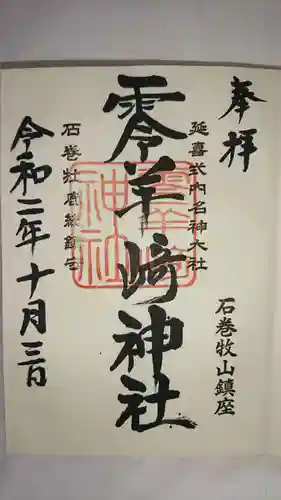 奉拝
石巻牧山鎮座
延喜式内名神大社
零羊﨑神社
零羊崎神社
石巻牡鹿総鎮守
令和二年十月三日